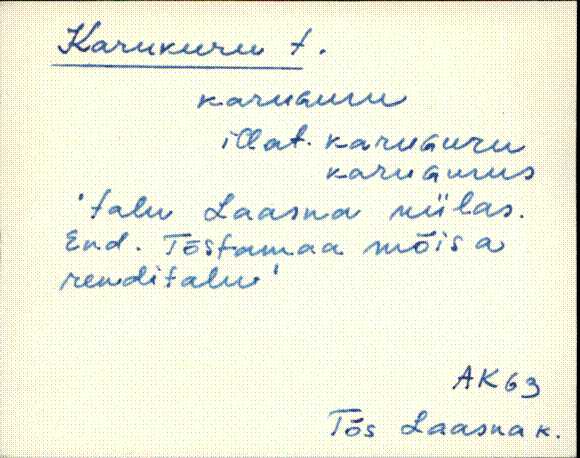 Karukuru t.
karuGuru
illat. karuGuru
karuGurus
'talu Laasna külas.
End. Tõstamaa mõisa
renditalu'
AK63
Tõs Laasna k.